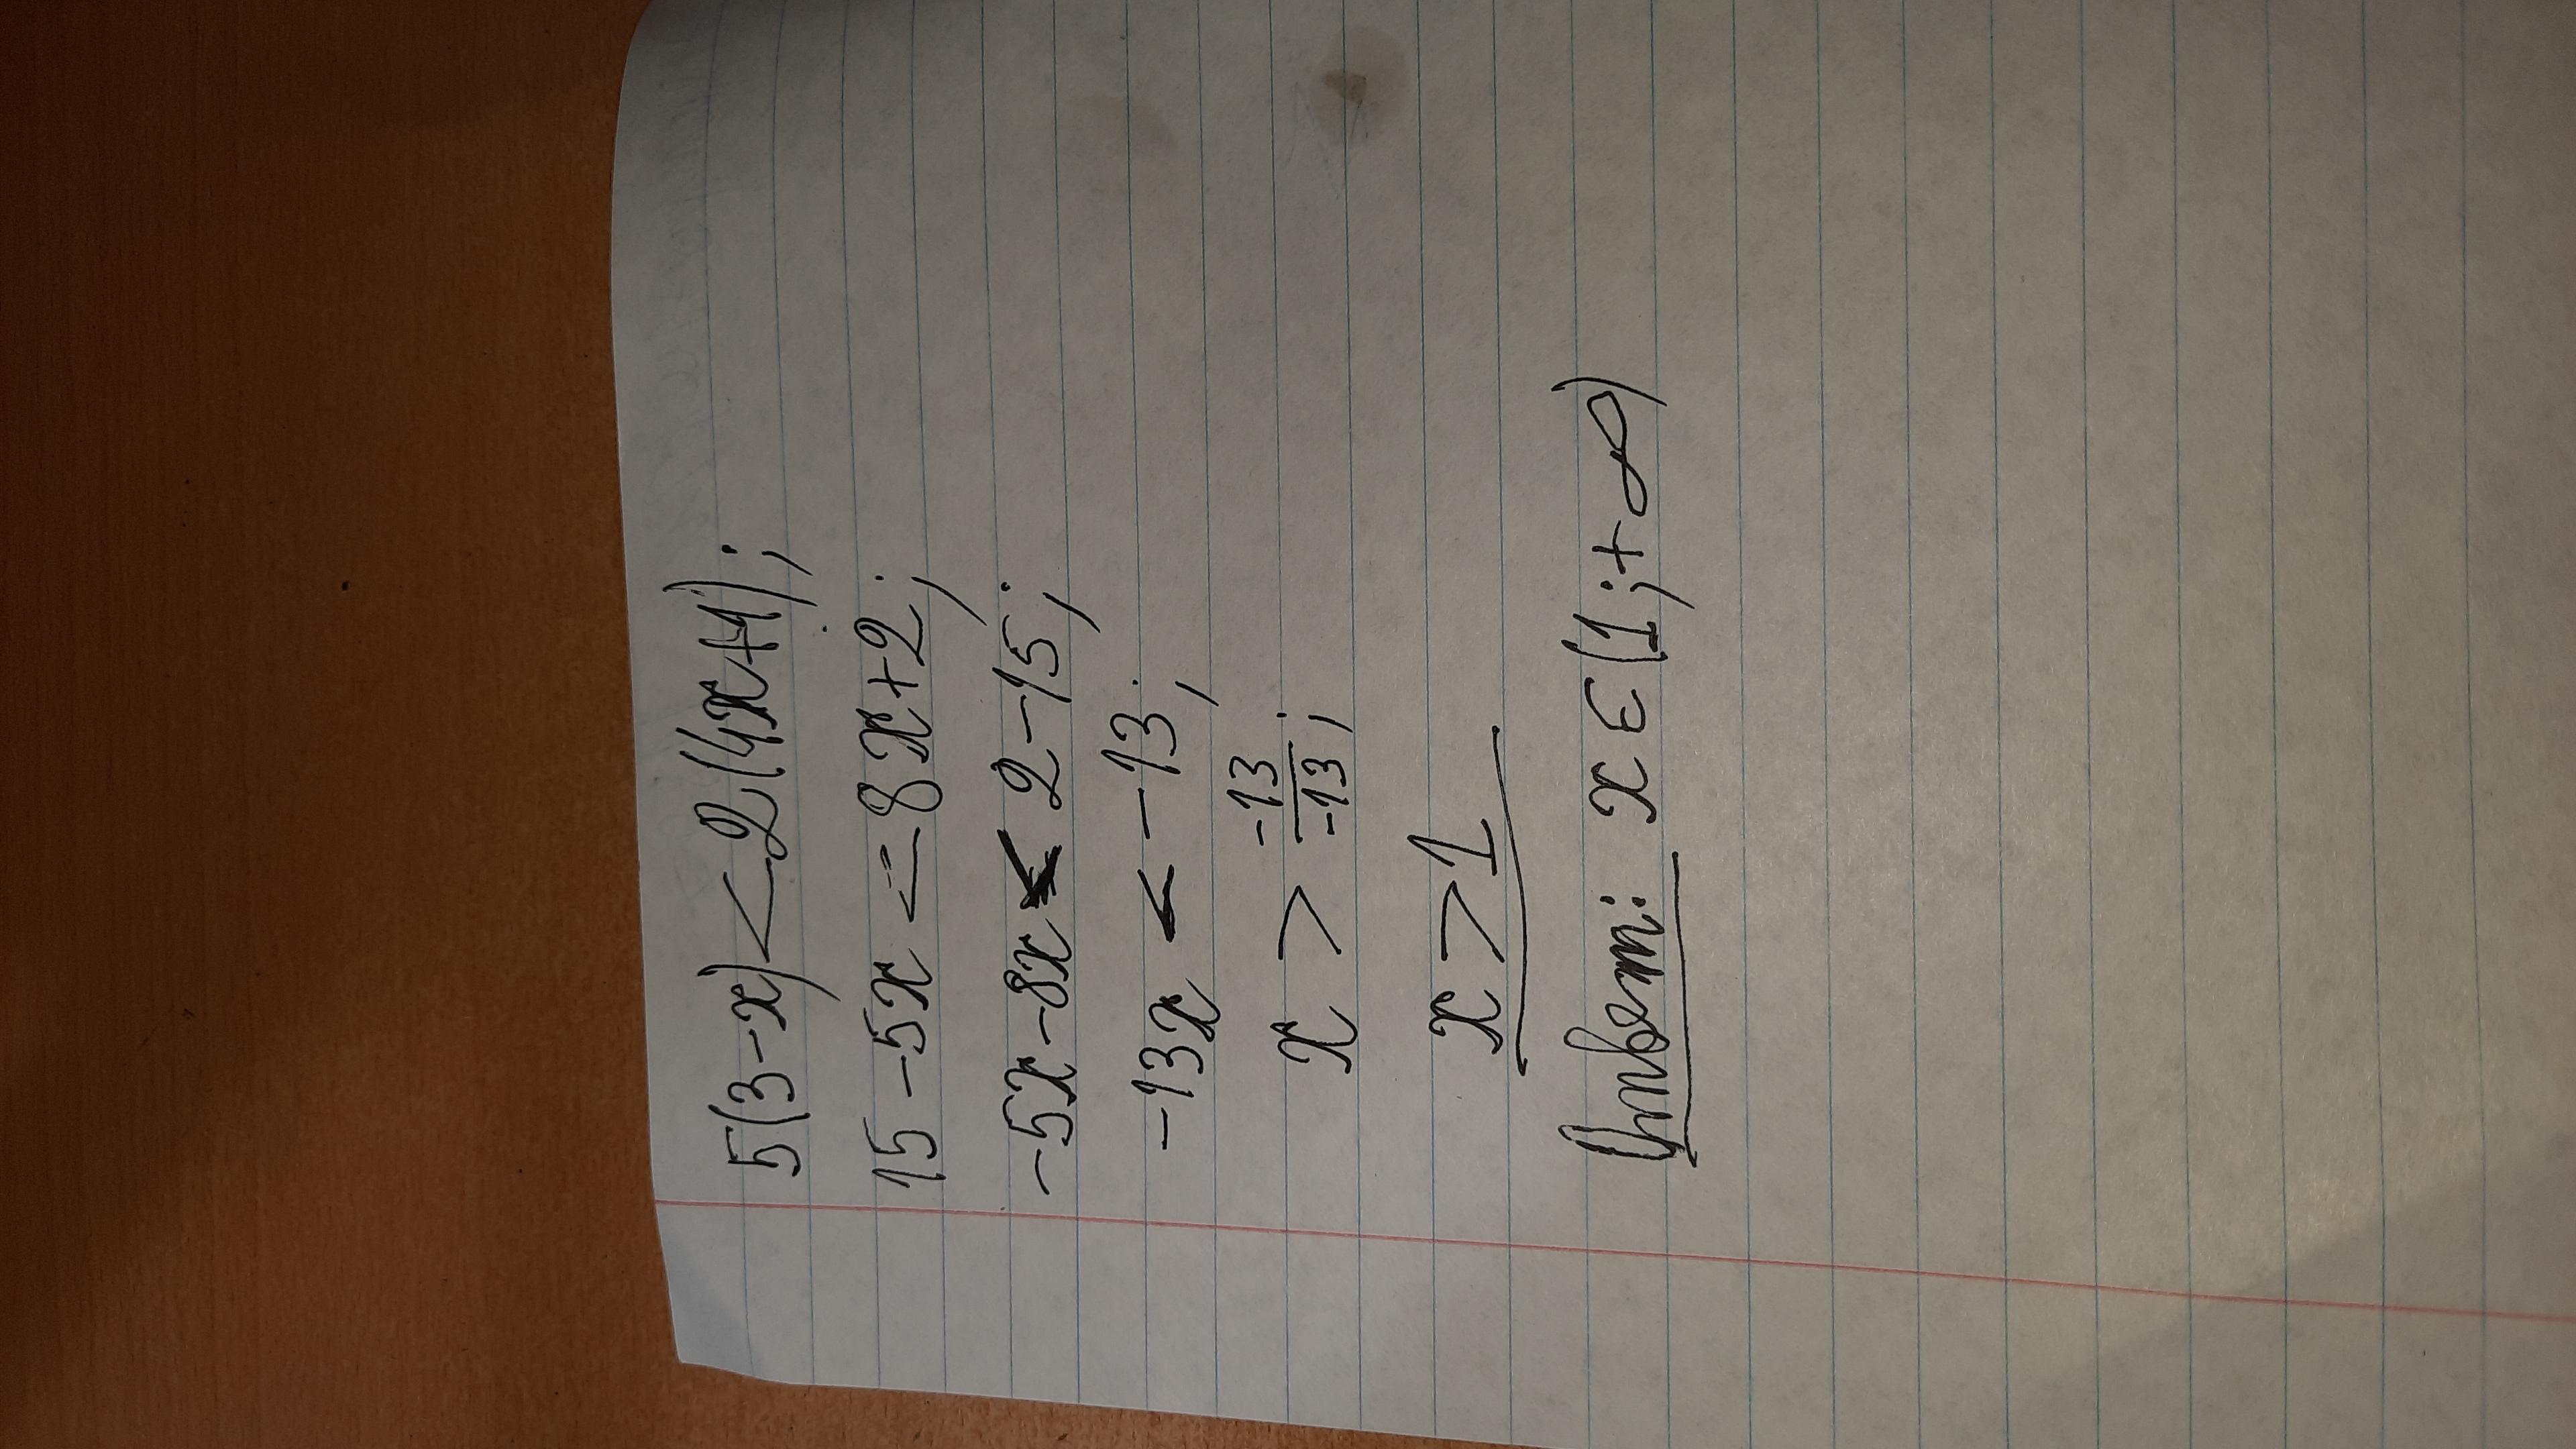 5(3-x)<2(4x+1);
15-5x<=8x+2;
-5x-8x<2-15;
-13x<-13;
x>\frac{-13}{-13};
x>1
Ответ: x∈(1;+∞)